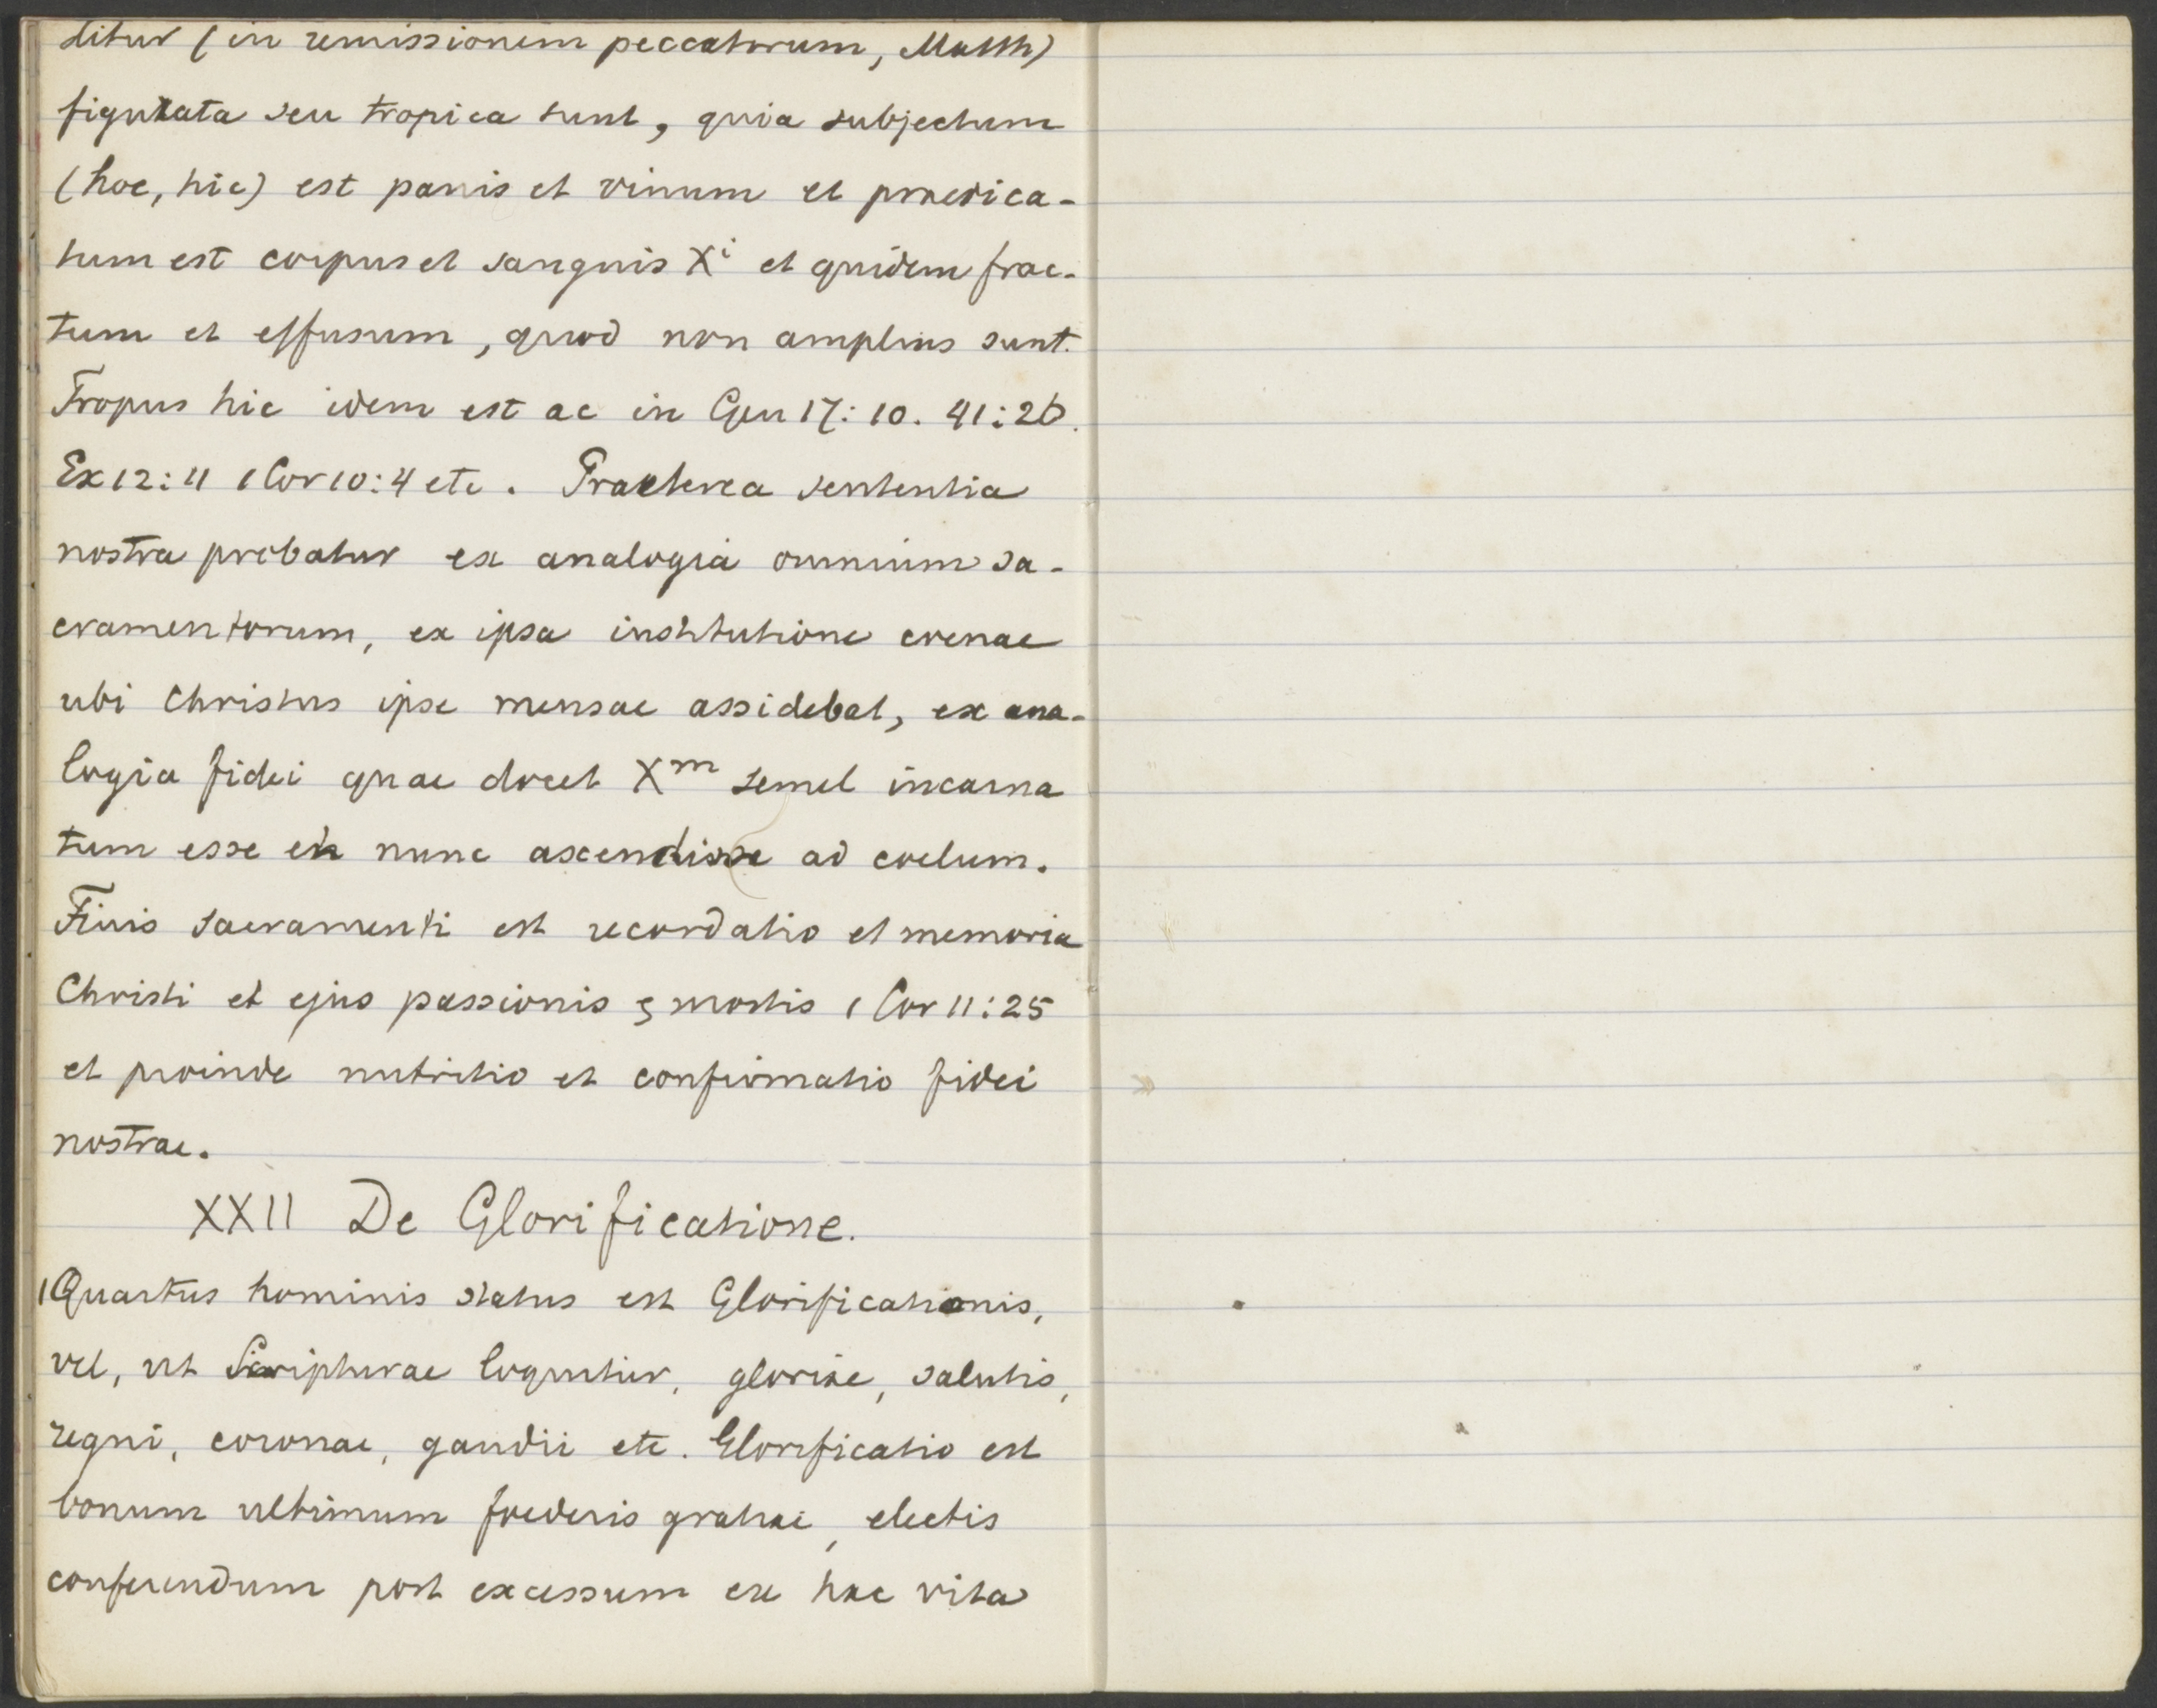 ditur (in remissionem peccatorum, Matth)
figurata seu tropica sunt, quia subjectum
(hoc, hic) est panis et vinum et praedica-
tum est corpus et sanguis Xi et quidem frac-
tum et effusum, quod non amplius sunt.
Tropus hic idem est ac in Gen 17:10. 41:26.
Ex 12:11 1 Cor 10:4 etc. Praeterea sententia
nostra probatur ex analogia omnium sa-
cramentorum, ex ipsa institutione coenae
ubi Christus ipse mensae assidebat, ex ana-
logia fidei quae docet Xm semel incarna
tum esse et nunc ascendisse ad coelum.
Finis sacramenti est recordatio et memoria
Christi et ejus passionis & mortis 1 Cor 11:25
et proinde nutritio et confirmatio fidei
nostrae.
XXII De Glorificatione.
1 Quartus hominis status est Glorificationis,
vel, ut Scripturae loquutur, gloriae, salutis,
regni, coronae, gaudii etc. Glorificatio est
bonum ultimum foederis gratiae, electis
conferendum post excessum ex hac vita